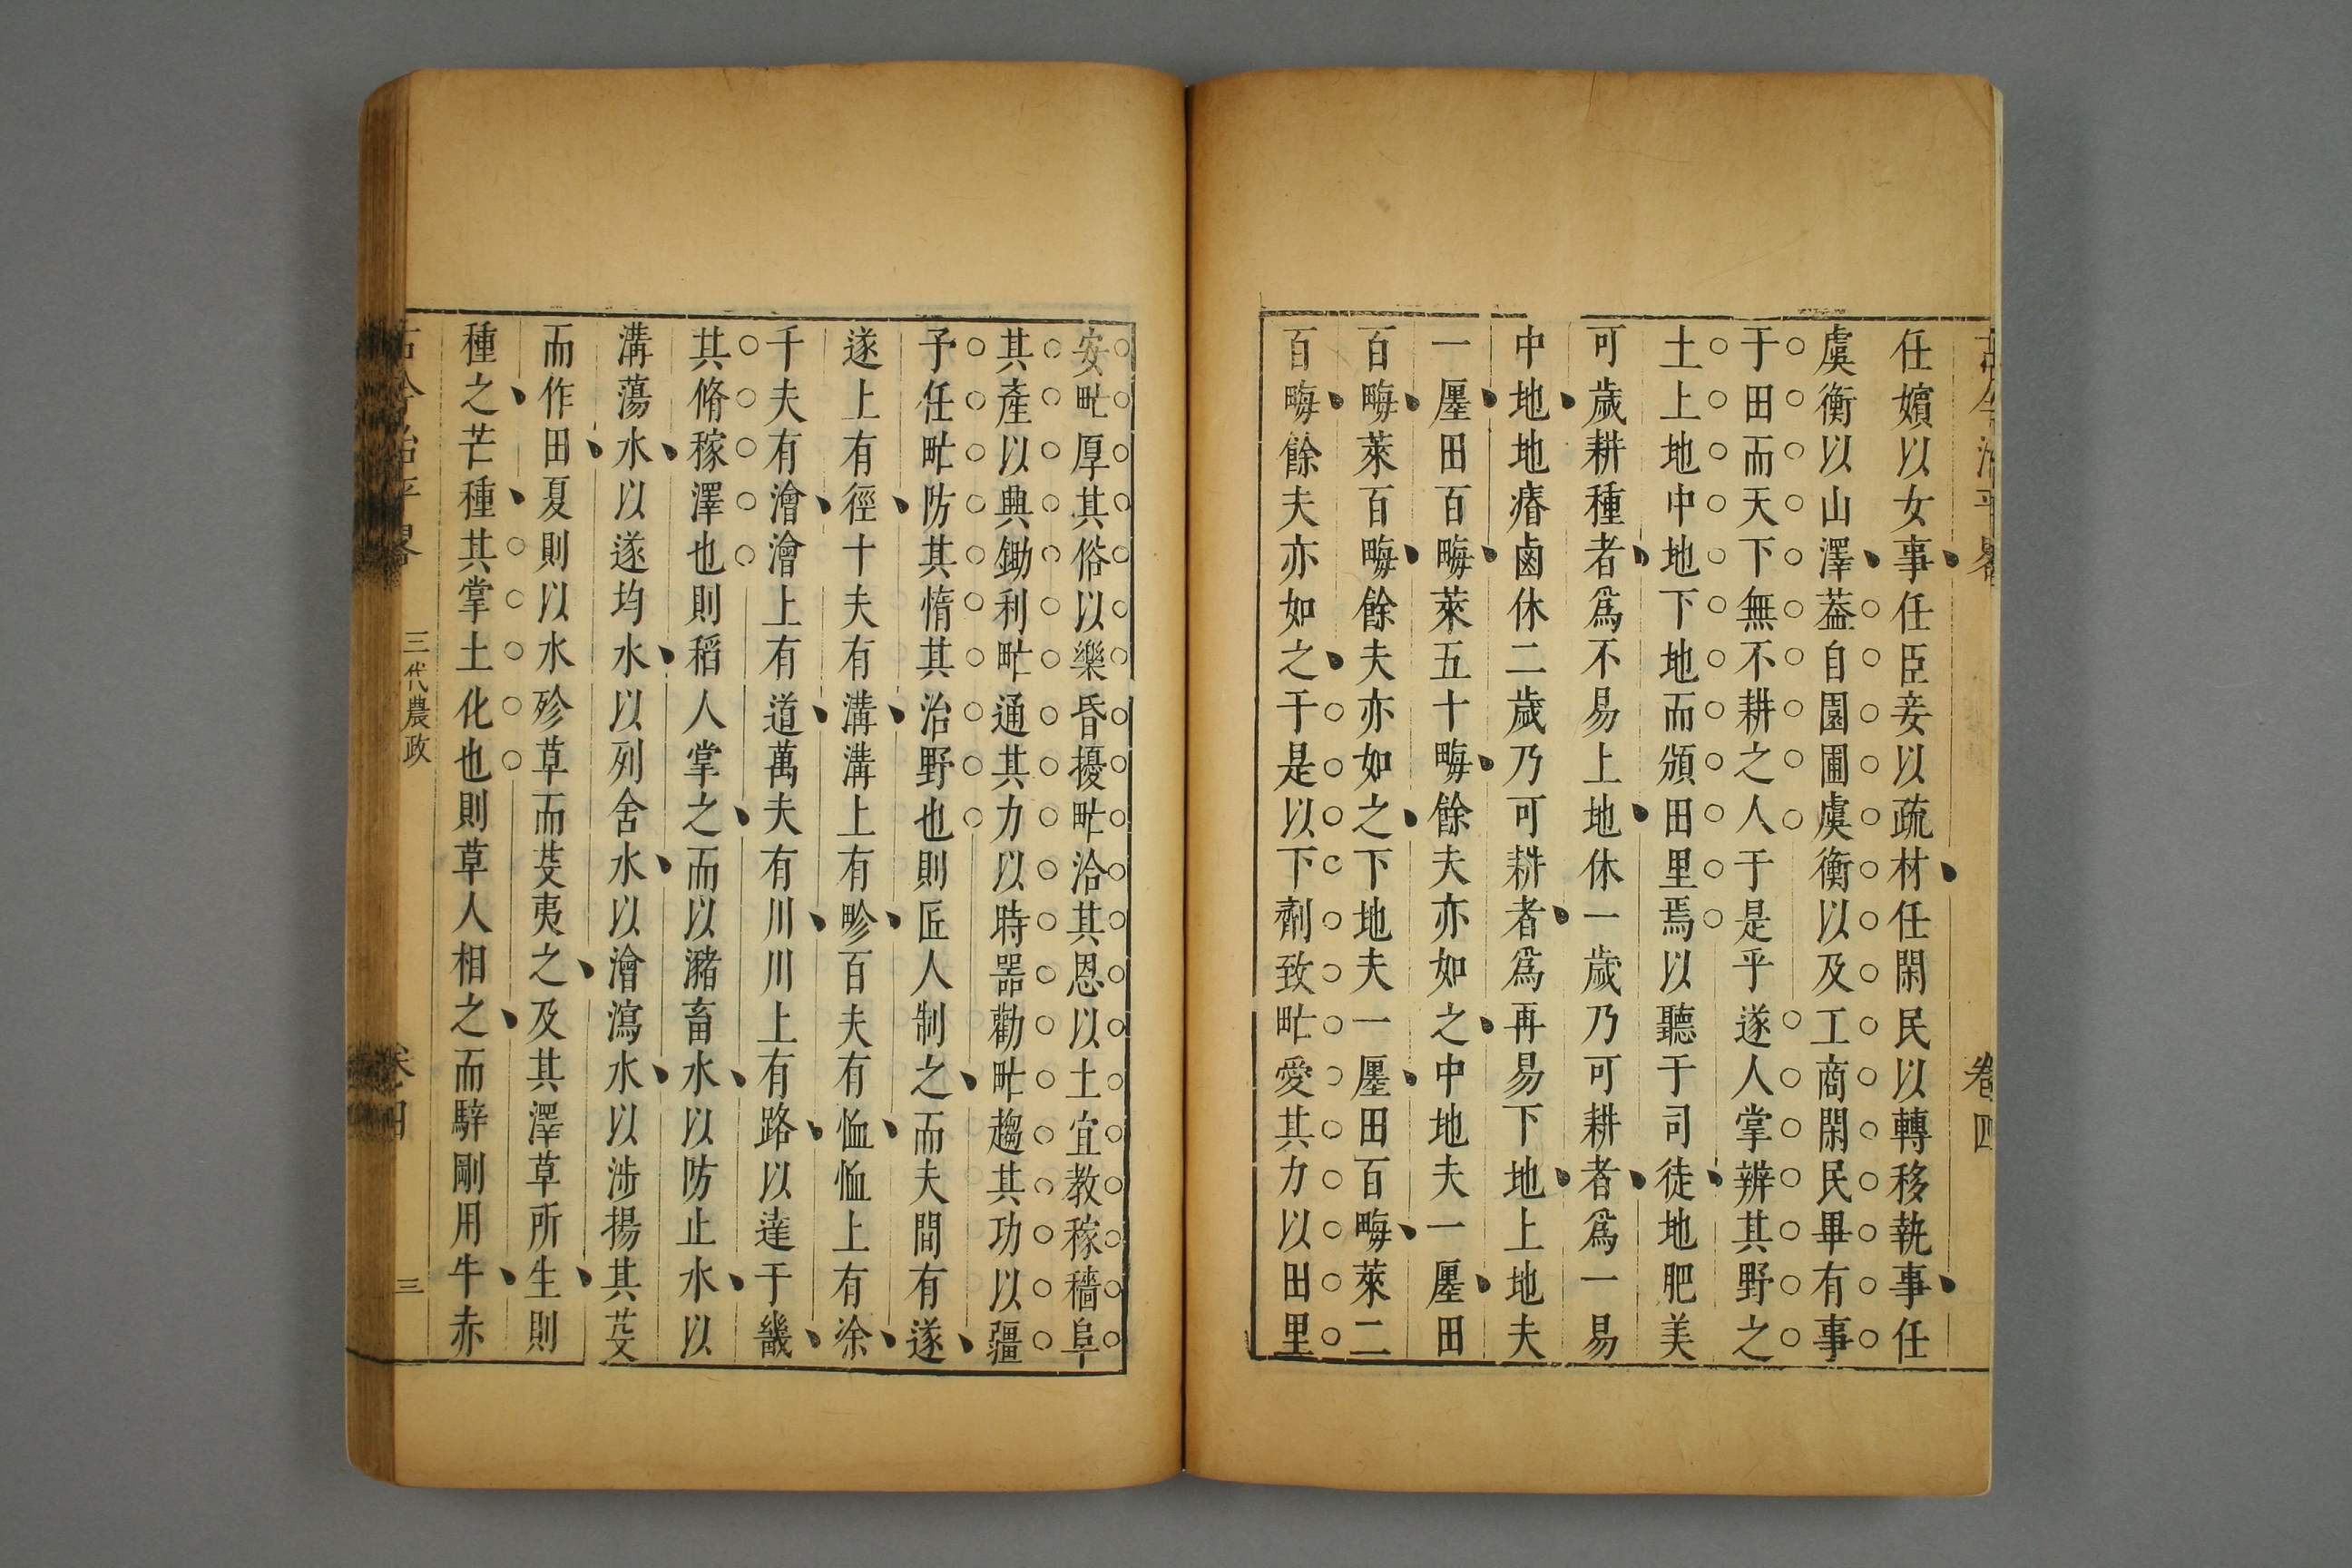 古今治平畧 卷四
任嬪以女事任臣妾以疏材任閑民以轉移執事任
虞衡以山澤葢自園圃虞衡以及工商閑民畢有事
于田而天下無不耕之人于是乎遂人掌辨其野之
土上地中地下地而頒田里焉以聽于司徒地肥美
可歲耕種者爲不易上地休一歲乃可耕者爲一易
中地地瘠鹵休二歲乃可耕者爲再易下地上地夫
一廛田百畮萊五十畮餘夫亦如之中地夫一廛田
百畮萊百畮餘夫亦如之下地夫一廛田百畮萊二
百畮餘夫亦如之于是以下劑致甿愛其力以田里
安甿厚其俗以樂昏擾甿洽其恩以土宜教稼穡阜
其產以興鋤利甿通其力以時噐勸甿趨其功以彊
予任甿防其惰其治野也則匠人制之而夫間有遂
遂上有徑十夫有溝溝上有畛百夫有恤恤上有涂
千夫有澮澮上有道萬夫有川川上有路以達于畿
其脩稼澤也則稻人掌之而以瀦畜水以防止水以
溝蕩水以遂均水以列舍水以澮瀉水以涉揚其芟
而作田夏則以水殄草而芟夷之及其澤草所生則
種之芒種其掌土化也則草人相之而騂剛用牛赤
古今治平畧 三代農政 卷四 三